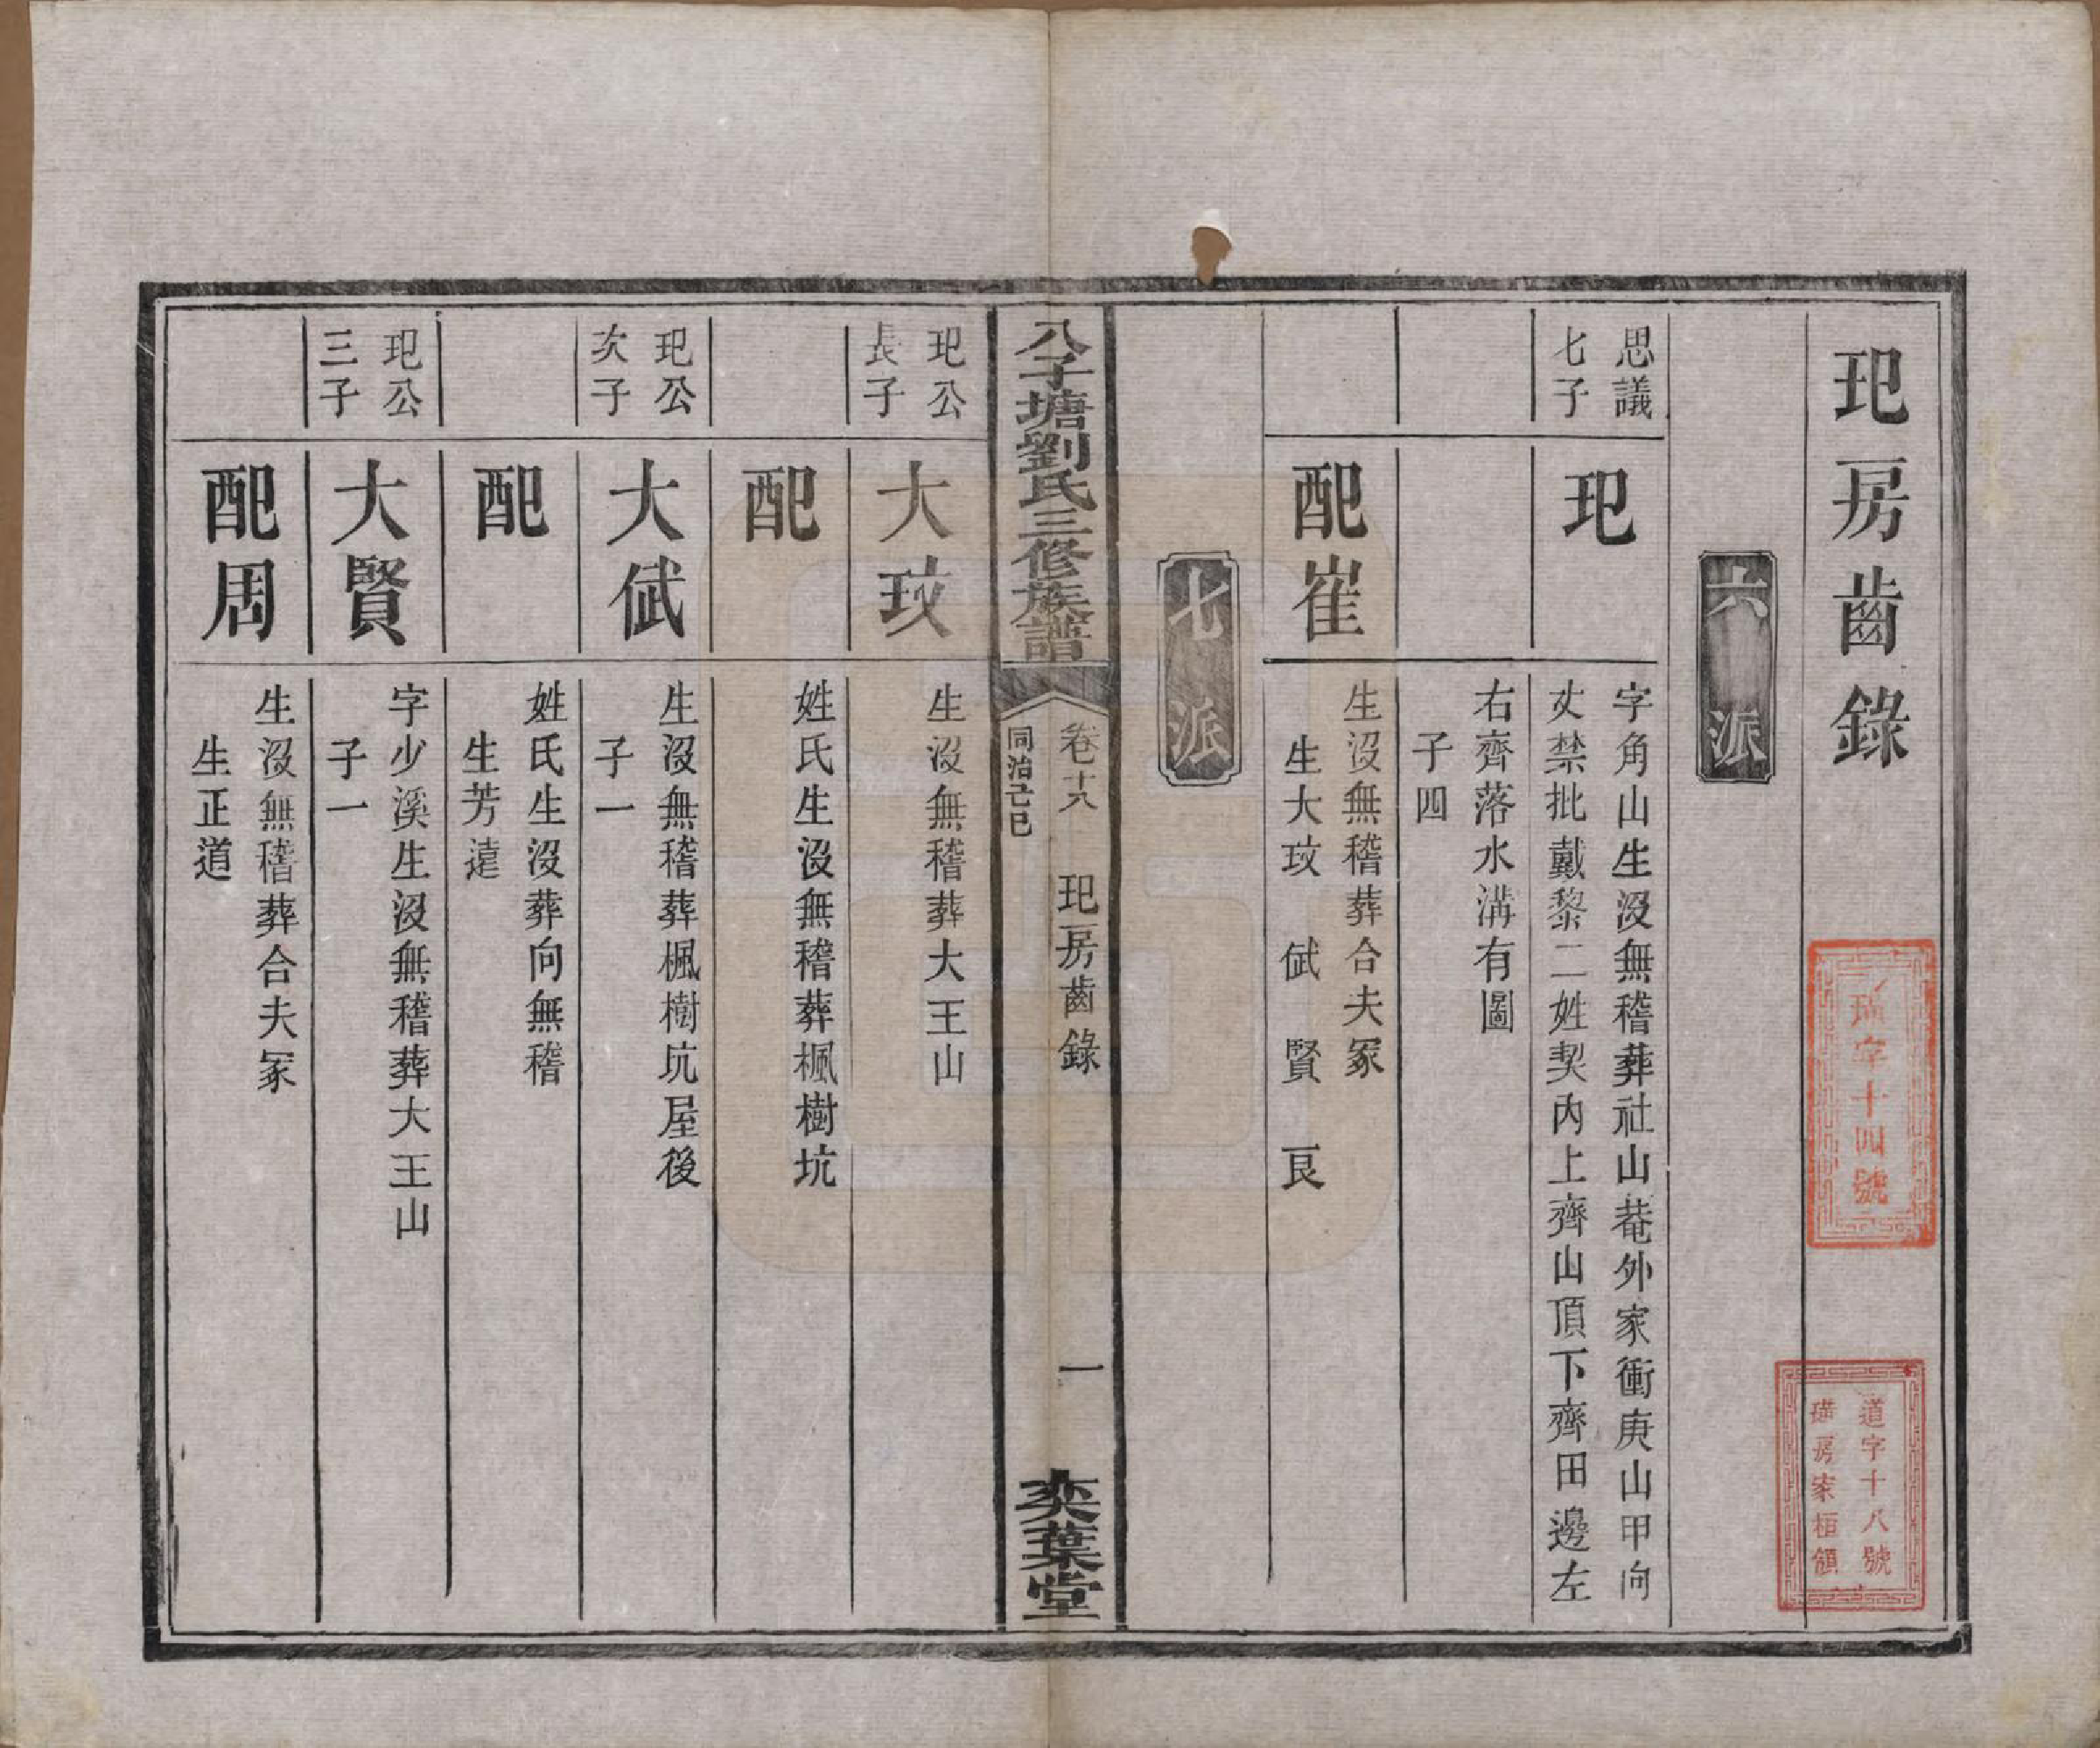 玘房齒錄
六派
思議
七子
玘
字角山生沒無稽葬社山菴外家衝庚山甲向
丈禁批戴黎二姓契內上齊山頂下齊田邊左
右齊落水溝有圖
子四
配崔
生沒無稽葬合夫冢
生大玟 倵 賢 良
七派
八子塘劉氏三修族譜
卷十八 玘房齒錄 一
同治己巳
奕葉堂
玘公
長子
大玟
生沒無稽葬大王山
配
姓氏生沒無稽葬楓樹坑
玘公
次子
大倵
生沒無稽葬楓樹坑屋後
子一
配
姓氏生沒葬向無稽
生芳遠
玘公
三子
大賢
字少溪生沒無稽葬大王山
子一
配周
生沒無稽葬合夫冢
生正道
字十四號
道字十八號
璜房家栢領